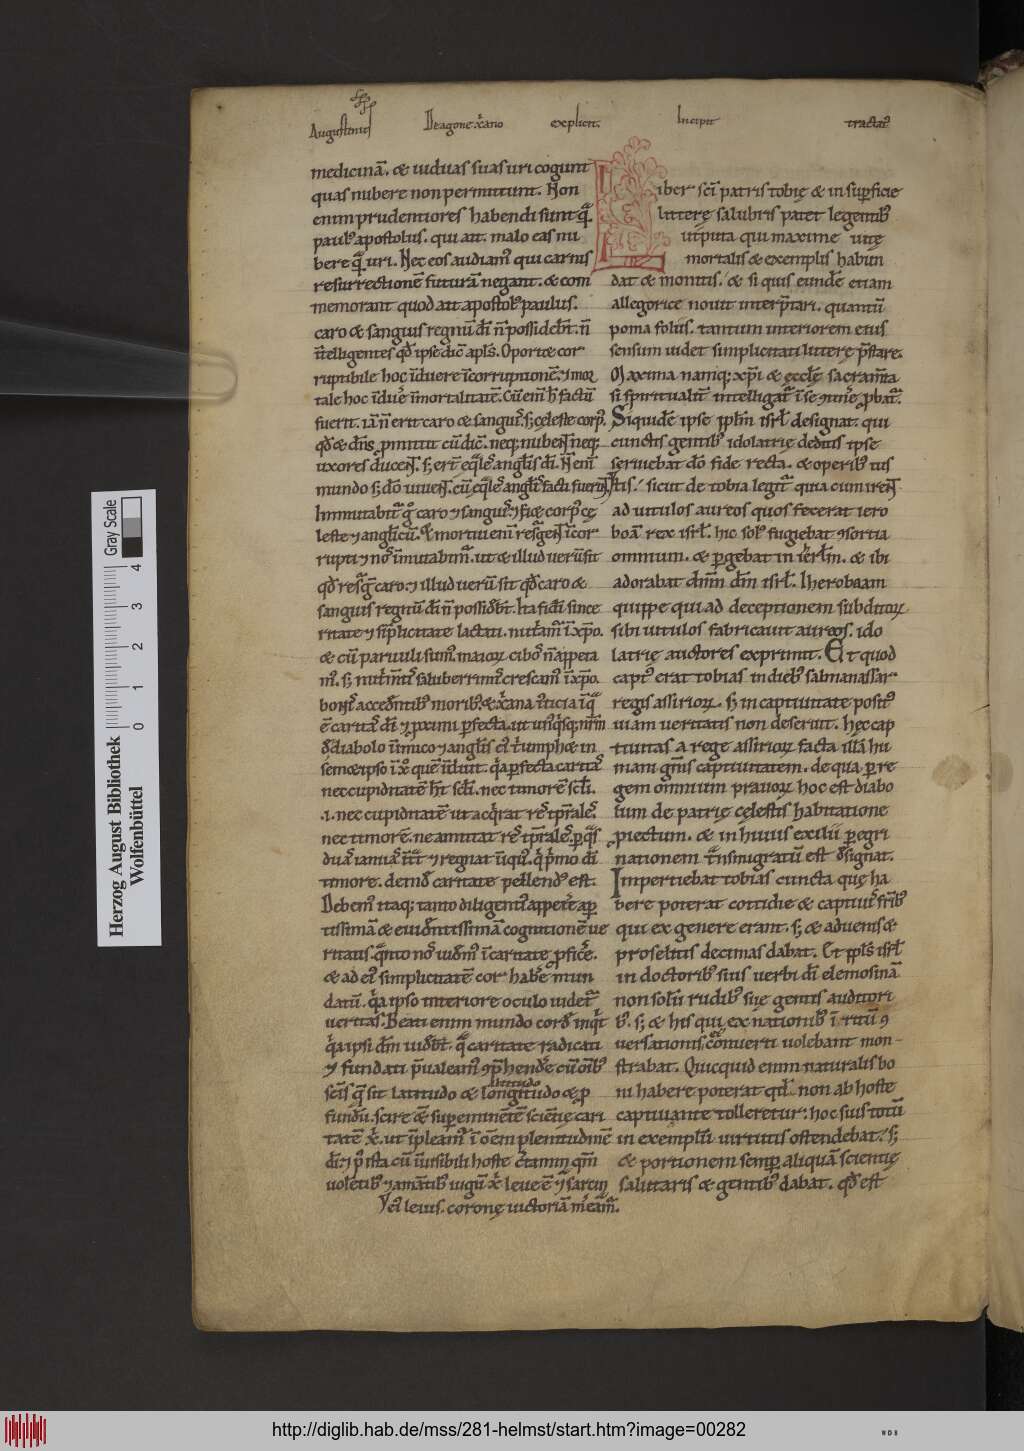 Augustinus De agone xp̄iano explicit. Incipit tractat᷒
medicinā. & uiduas suas uri cogunt
quas nubere non permittunt. Non
enim prudentiores habendi sunt quā
paulꝰ apostolus. qui ait. malo eas nu
bere quā uri. Nec eos audiamꝰ qui carnis
resurrectionē futurā negant. & com
memorant quod ait apostolꝰ paulus.
caro & sanguis regnū dī n̄ possidebt̄. n̄
intelligentes qd̄ ipse dic̄ apl̄s. Oportet cor
ruptibile hoc īduere īcorruptionē. ⁊ mor
tale hoc īduere īmortalitatē. Cū enī h̄ factū
fuerit. iā n̄ erit caro & sanguis. s; celeste corpꝰ.
uxores ducent. s; erт̄ eq̄les angl̄is dī. Non enī
mundo s; dō uiuent. cū eq̄les angl̄is facti fuerint
Immutabit᷒ g̊ caro ⁊ sanguis. ⁊ fiet corpꝰ cę
leste ⁊ angl̄icū. Et mortui enī resurgent īcor
rupti ⁊ nos īmutabim᷒. ut & illud uerū sit
qd̄ resurget caro. ⁊ illud uerū sit qd̄ caro &
sanguis regnū dī n̄ possidebt̄. Ita fidei since
ritate ⁊ simplicitate lactati. nutriam᷒ ī xp̄o.
& cū paruuli sumꝰ. maiorꝝ cibos n̄ appeta
mꝰ. s; nutrimtis saluberrimis crescamꝰ ī xp̄o.
bonis accedentibꝰ moribꝰ. & xp̄iana iusticia ī q̄
ē caritas dī & pximi perfecta. ut unꝰqsq; nr̄m
de diabolo inimico ⁊ angl̄is eiꝰ triumphet in
semet ipso ī xp̄o quē īduit. q̄a perfecta caritas
nec cupiditatē ht̄ sc̄li. nec timorē sc̄li.
.i. nec cupiditatē ut acqrat res tp̄rales.
nec timorē. ne amittat res tp̄rales. p quas
duas ianuas intrat ⁊ regnat inimicꝰ. q̄ primo dī
timore. deinde caritate pellendꝰ est.
Debemꝰ itaq; tanto diligentiꝰ appetere aper
tissimā & euidentissimā cognitionē ue
ritatis. q̄nto nos uidemꝰ ī caritate proficere.
& ad eiꝰ simplicitatē cor habere mun
datū. q̄a ipso interiore oculo uidet᷒
ueritas. Beati enim mundo corde inqt
q̄a ipsi dm̄ uidebt̄. ut caritate radicati
⁊ fundati p̄ualeamꝰ ꝯprehendere cū oībꝰ
sc̄is que sit latitudo & longitudo & p
altitudo
fundū. scire & supeminentē scientię cari
tatē xp̄i. ut īpleamur ī oēm plenitudinē
dī. ⁊ post ista cū īuisibili hoste certamina qm̄
uolētibꝰ ⁊ amātibꝰ iugū xp̄i leue ē ⁊ sarcin
⁊ eiꝰ leuis. coronę uictoriā mereamur.
Liber sc̄i patris tobię & in superficie
litterę salubris patet legentibꝰ
utputa qui maxime uitę
mortalis & exemplis habun
dat & monitis. & si quis eundē etiam
allegorice nouit interp̄tari. quantū
poma foliis. tantum interiorem eius
sensum uidet simplicitati litterę p̄stare.
Maxima namq; xp̄i & ęccl̄ę sacram̄ta
si spiritualit᷒ intelligat᷒ ī se ꝯtinere probat᷒.
Siquidē ipse ppl̄m isrl̄ designat. qui
cunctis gentibꝰ idolatrię deditis ipse
seruiebat dō fide recta. & operibꝰ ius
tis. sicut de tobia legit᷒ quia cum irent
ad uitulos aureos quos fecerat iero
boā rex isrl̄. hic solꝰ fugiebat ꝯsortia
omnium. & pergebat in ierl̄m. & ibi
adorabat dnm̄ dm̄ isrl̄. Iherobaam
quippe qui ad deceptionem subditorꝝ
sibi uitulos fabricauit aureos. ido
latrię auctores exprimit. Et quod
captꝰ erat tobias in diebꝰ salmanassar
regis assiriorꝝ. s; in captiuitate positꝰ
uiam ueritatis non deseruit. hęc cap
tiuitas a rege assiriorꝝ facta illā hu
mani gn̄is captiuitatem. de qua per re
gem omnium prauorꝝ hoc est diabo
lum de patrię cęlestis habitatione
proiectum. & in huius exilii peregri
nationem transmigratū est designat.
Impertiebat tobias cuncta quę ha
bere poterat cottidie & captiuis fr̄ibꝰ
qui ex genere erant. s; & aduenis &
proselitis decimas dabat. Et ppl̄s isrl̄
in doctoribꝰ suis uerbi dī elemosinā
non solū rudibꝰ suę gentis auditori
bꝰ. s; & his qui ex nationibꝰ ī ritū ꝯ
uersationis eoꝝ conuerti uolebant mon-
strabat. Quicquid enim naturalis bo
ni habere poterat qd̄ non ab hoste
captiuante tolleretur: hoc suis totū
in exemplū uirtutis ostendebat. s;
& portionem semper aliquā scientię
salutaris & gentibꝰ dabat. qd̄ est
Herzog August Bibliothek
Wolfenbüttel
Gray Scale
0 1 2 3 4
http://diglib.hab.de/mss/281-helmst/start.htm?image=00282
WDB